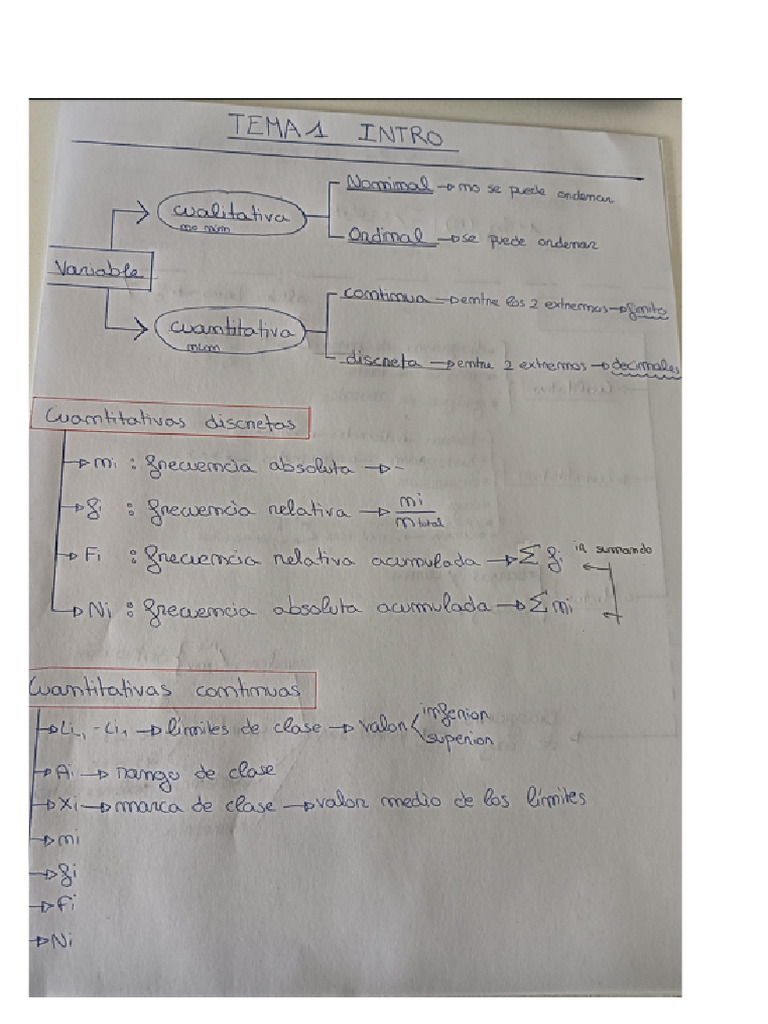 TEMA 1 INTRO
Variable
cualitativa
no núm
Nominal → no se puede ordenar
Ordinal → se puede ordenar
cuantitativa
núm
continua → entre los 2 extremos → finito
discreta → entre 2 extremos → decimales
Cuantitativas discretas
→ ni : frecuencia absoluta → -
→ fi : frecuencia relativa → ni / n total
→ Fi : frecuencia relativa acumulada → Σ fi ir sumando
→ Ni : frecuencia absoluta acumulada → Σ ni
Cuantitativas continuas
→ Li-1 - Li1 → límites de clase → valor < inferior superior
→ Ai → rango de clase
→ Xi → marca de clase → valor medio de los límites
→ ni
→ fi
→ Fi
→ Ni